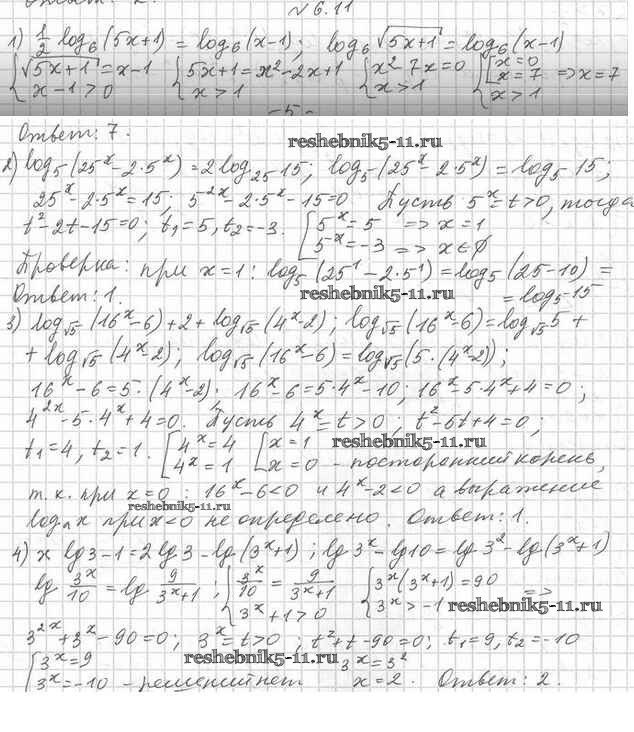 Ответ: 2.
№6.11
1) 1/2 log₆(5x+1) = log₆(x-1); log₆√(5x+1) = log₆(x-1)
{√(5x+1) = x-1 {5x+1 = x²-2x+1 {x²-7x=0 {[x=0
x-1>0 x>1 x>1 [x=7 => x=7
x>1
-5-
Ответ: 7.
reshebnik5-11.ru
2) log₅(25ˣ-2·5ˣ) = 2log₂₅15; log₅(25ˣ-2·5ˣ) = log₅15;
25ˣ-2·5ˣ=15; 5²ˣ-2·5ˣ-15=0 Пусть 5ˣ=t>0, тогда
t²-2t-15=0; t₁=5, t₂=-3. [5ˣ=5 => x=1
[5ˣ=-3 => x∈∅
Проверка: при x=1: log₅(25¹-2·5¹) = log₅(25-10) =
Ответ: 1. reshebnik5-11.ru = log₅15
3) log√5(16ˣ-6)+2+log√5(4ˣ-2); log√5(16ˣ-6)=log√5 5+
+log√5(4ˣ-2); log√5(16ˣ-6)=log√5(5·(4ˣ-2));
16ˣ-6=5·(4ˣ-2); 16ˣ-6=5·4ˣ-10; 16ˣ-5·4ˣ+4=0;
4²ˣ-5·4ˣ+4=0. Пусть 4ˣ=t>0; t²-5t+4=0;
t₁=4, t₂=1. [4ˣ=4 [x=1 reshebnik5-11.ru
[4ˣ=1 [x=0 - посторонний корень,
т.к. при x=0: 16ˣ-6<0 и 4ˣ-2<0 а выражение
reshebnik5-11.ru
logₙx при x<0 не определено. Ответ: 1.
4) x lg3-1=2lg3-lg(3ˣ+1); lg3ˣ-lg10=lg3²-lg(3ˣ+1)
lg 3ˣ/10 = lg 9/(3ˣ+1); {3ˣ/10 = 9/(3ˣ+1) {3ˣ(3ˣ+1)=90 =>
3ˣ+1>0 3ˣ>-1 reshebnik5-11.ru
3²ˣ+3ˣ-90=0; 3ˣ=t>0; t²+t-90=0; t₁=9, t₂=-10
[3ˣ=9 reshebnik5-11.ru 3ˣ=3²
[3ˣ=-10 - решений нет x=2. Ответ: 2.